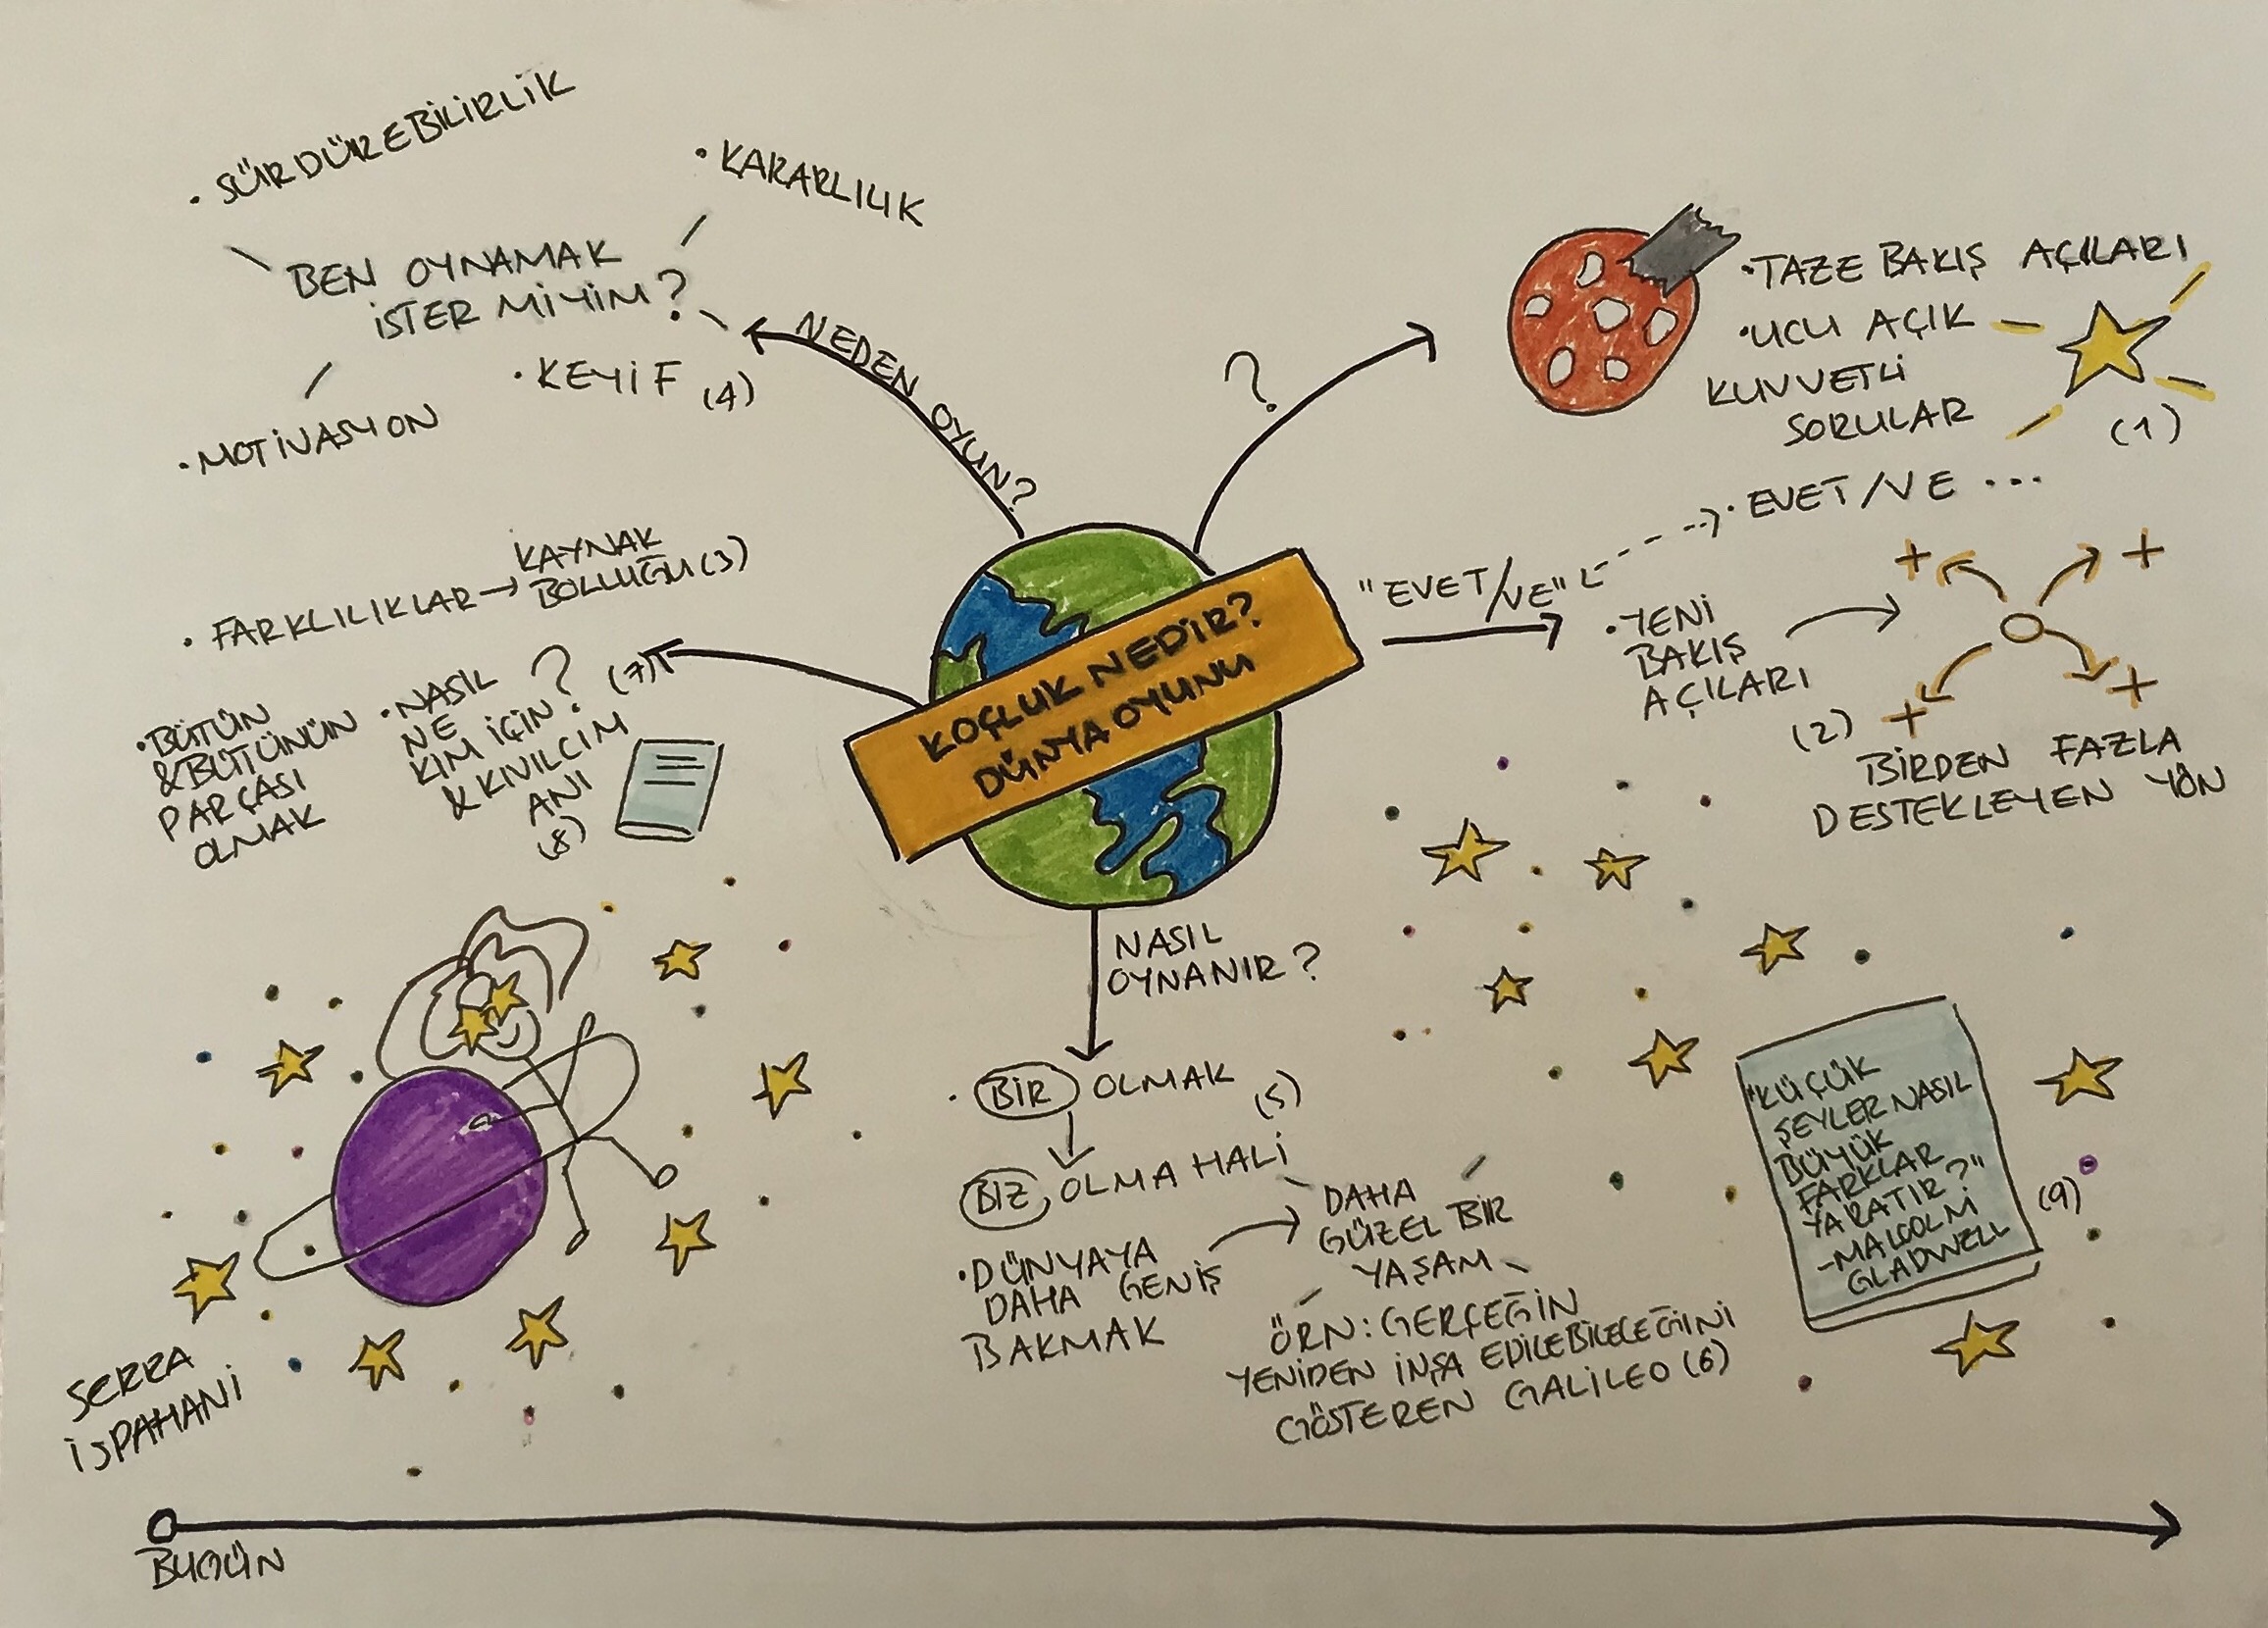 • SÜRDÜREBİLİRLİK
• KARARLILIK
BEN OYNAMAK
İSTER MİYİM?
• KEYİF (4)
• MOTİVASYON
NEDEN OYUN?
?
• TAZE BAKIŞ AÇILARI
• UCU AÇIK
KUVVETLİ
SORULAR
(1)
"EVET/VE"
• EVET/VE ...
• YENİ
BAKIŞ
AÇILARI
(2)
BİRDEN FAZLA
DESTEKLEYEN YÖN
• FARKLILIKLAR → KAYNAK
BOLLUĞU (3)
(7)
• BÜTÜN
& BÜTÜNÜN
PARÇASI
OLMAK
• NASIL ?
NE
KİM İÇİN?
& KIVILCIM
ANI
(8)
KOÇLUK NEDİR?
DÜNYA OYUNU
NASIL
OYNANIR?
• BİR OLMAK
(5)
BİZ OLMA HALİ
• DÜNYAYA
DAHA GENİŞ
BAKMAK
DAHA
GÜZEL BİR
YAŞAM
ÖRN: GERÇEĞİN
YENİDEN İNŞA EDİLEBİLECEĞİNİ
GÖSTEREN GALİLEO (6)
"KÜÇÜK
ŞEYLER NASIL
BÜYÜK
FARKLAR
YARATIR?"
- MALCOLM
GLADWELL
(9)
SERRA
İSPAHANİ
BUGÜN